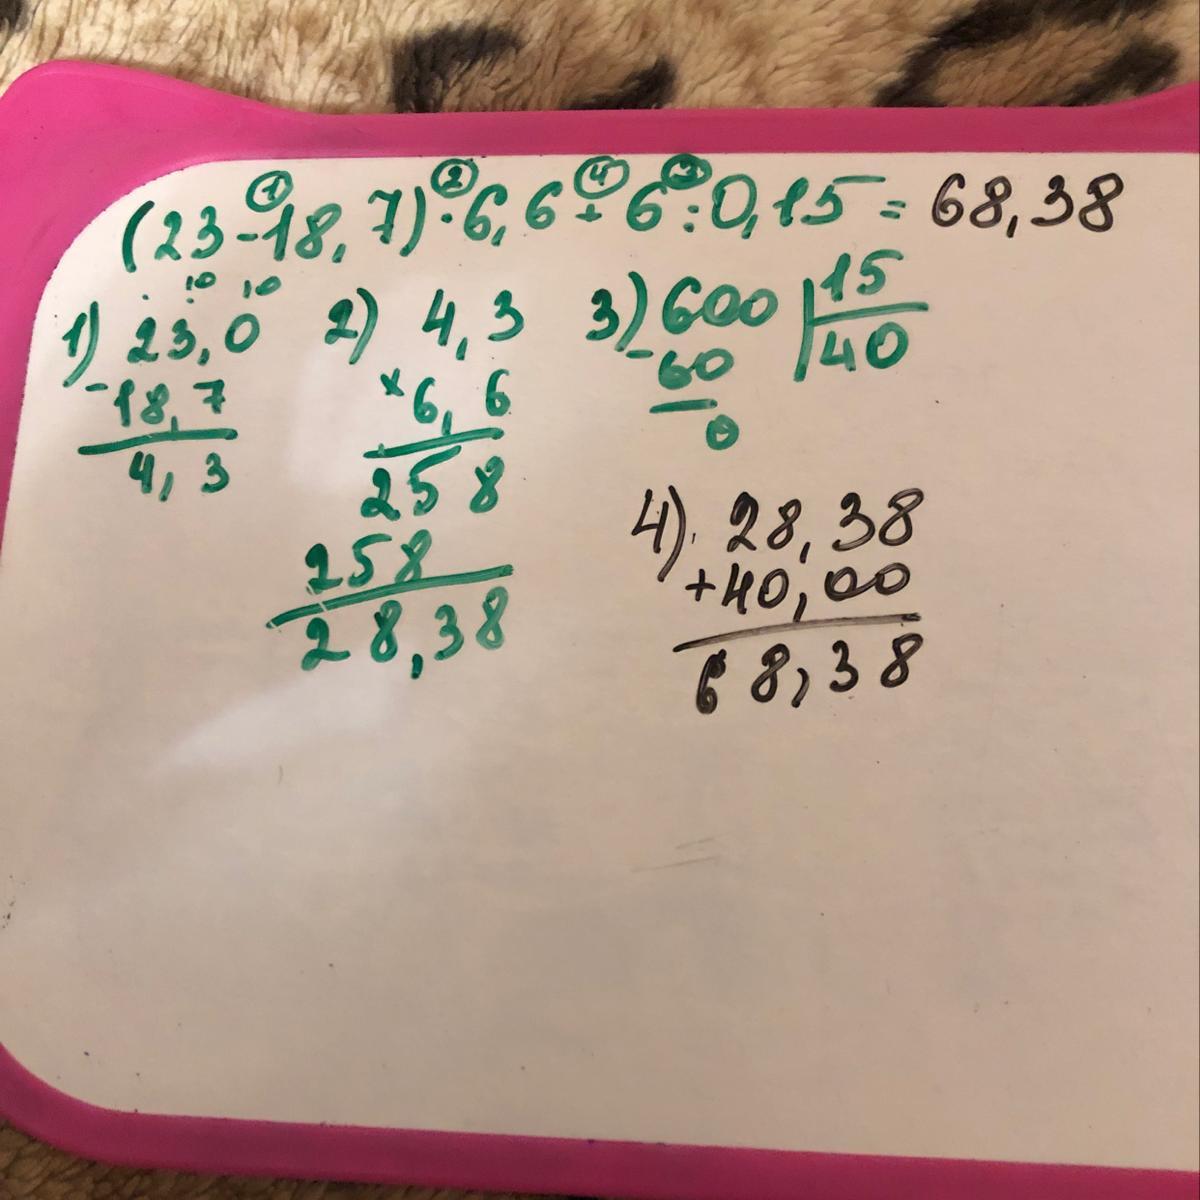 (23-18,7)·6,6+6:0,15=68,38
① ② ④ ③
1) 23,0
. 10 10
-18,7
4,3
2) 4,3
×6,6
258
258
28,38
3) 600 | 15
-60 | 40
0
4) 28,38
+40,00
68,38